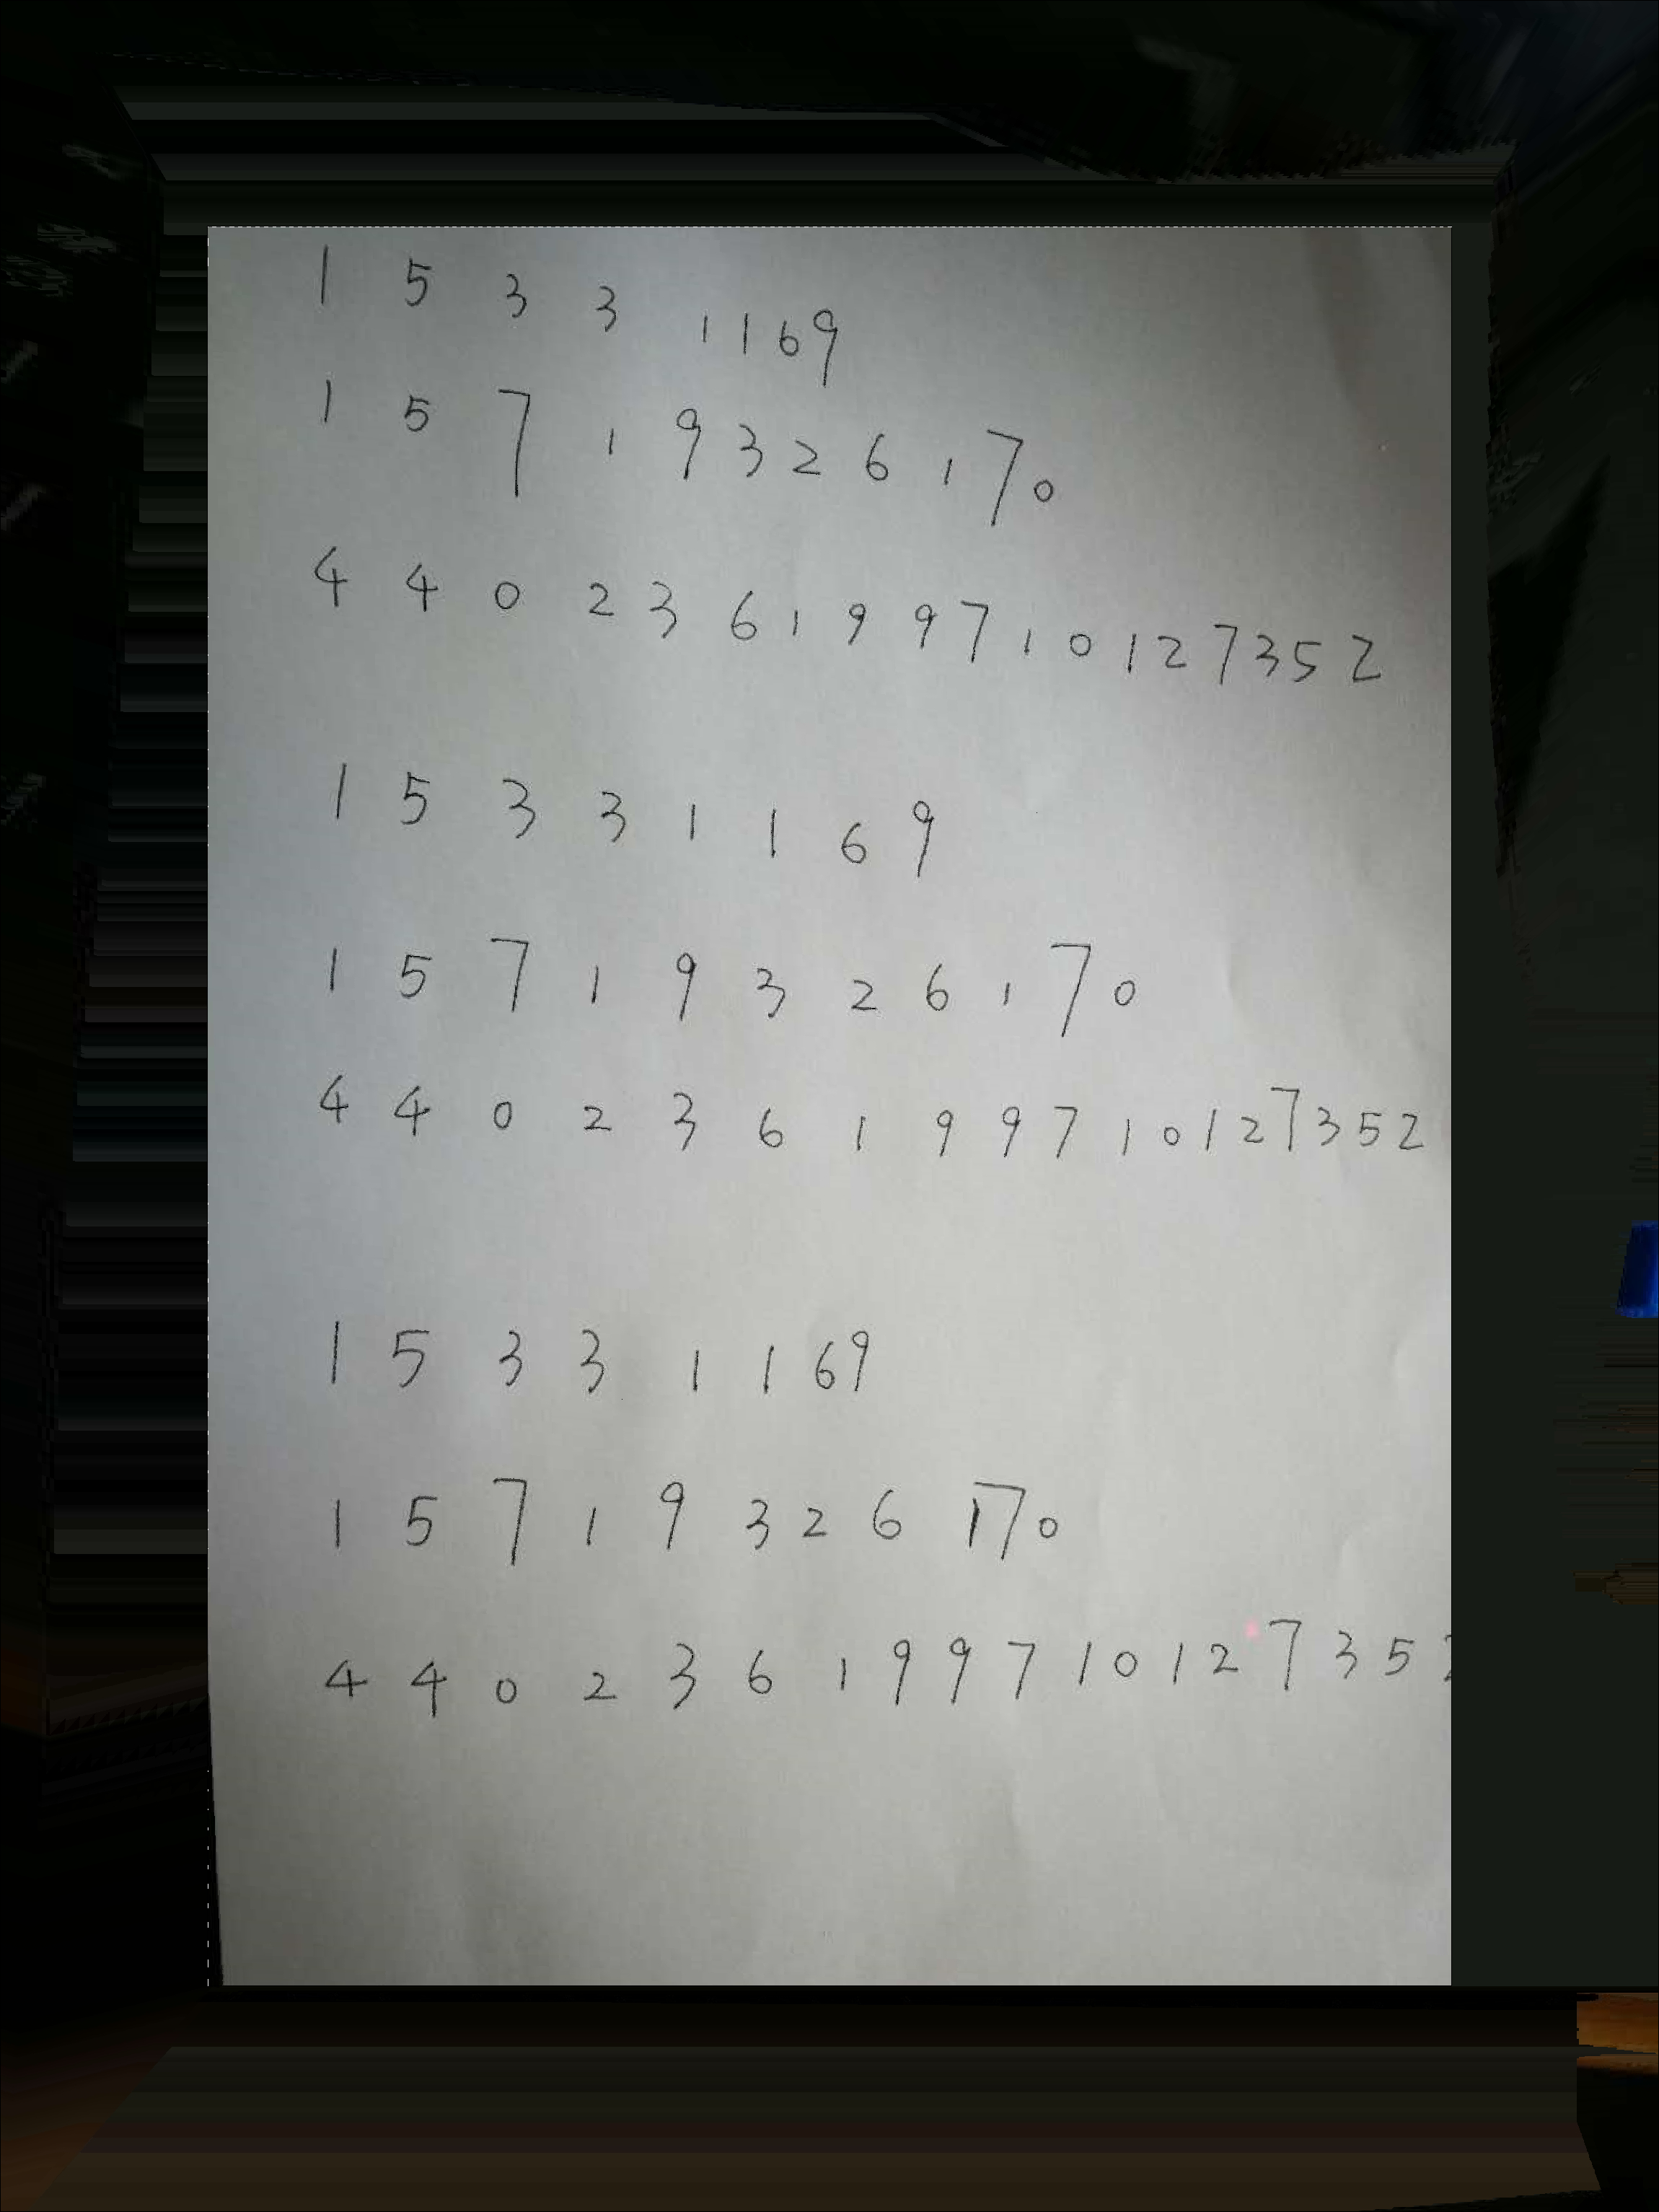 1 5 3 3 1 1 6 9
1 5 7 1 9 3 2 6 1 7 0
4 4 0 2 3 6 1 9 9 7 1 0 1 2 7 3 5 2
1 5 3 3 1 1 6 9
1 5 7 1 9 3 2 6 1 7 0
4 4 0 2 3 6 1 9 9 7 1 0 1 2 7 3 5 2
1 5 3 3 1 1 6 9
1 5 7 1 9 3 2 6 1 7 0
4 4 0 2 3 6 1 9 9 7 1 0 1 2 7 3 5